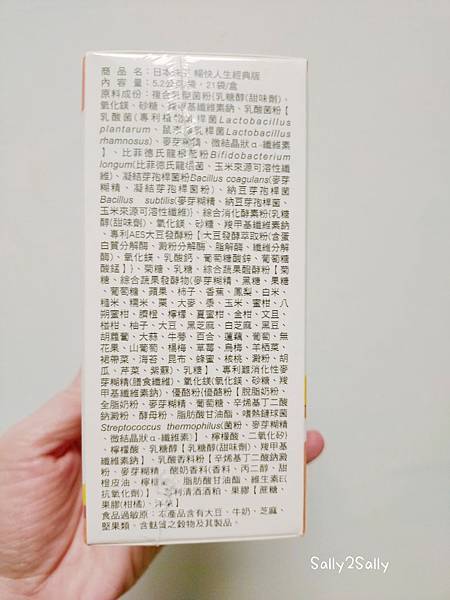 商品名:日本味王暢快人生經典版
內容量:5.2公克/袋,21袋/盒
原料成份:複合乳酸菌粉{乳糖醇(甜味劑)、
氧化鎂、砂糖、羧甲基纖維素鈉、乳酸菌粉【
乳酸菌(專利植物乳桿菌Lactobacillus
plantarum、鼠李糖乳桿菌Lactobacillus
rhamnosus)、麥芽糊精、微結晶狀α-纖維素
】、比菲德氏龍根菌粉Bifidobacterium
longum(比菲德氏龍根菌、玉米來源可溶性纖
維)、凝結芽孢桿菌粉Bacillus coagulans(麥芽
糊精、凝結芽孢桿菌粉)、納豆芽孢桿菌
Bacillus subtilis(麥芽糊精、納豆芽孢桿菌、
玉米來源可溶性纖維)}、綜合消化酵素粉{乳糖
醇(甜味劑)、氧化鎂、砂糖、羧甲基纖維素鈉
、專利AES大豆發酵粉【大豆發酵萃取粉(含蛋
白質分解酶、澱粉分解酶、脂解酶、纖維分解
酶)、氧化鎂、乳酸鈣、葡萄糖酸鋅、葡萄糖
酸錳】}、菊糖、乳糖、綜合蔬果酵粉【菊
糖、綜合蔬果發酵物(麥芽糊精、黑糖、果糖
、葡萄糖、蘋果、柿子、香蕉、鳳梨、白米、
糙米、糯米、粟、大麥、黍、玉米、蜜柑、八
朔蜜柑、臍橙、檸檬、夏蜜柑、金柑、文旦、
椪柑、柚子、大豆、黑芝麻、白芝麻、黑豆、
胡蘿蔔、大蒜、牛蒡、百合、蓮藕、葡萄、無
花果、山葡萄、楊梅、草莓、烏梅、羊栖菜、
裙帶菜、海苔、昆布、蜂蜜、核桃、澱粉、胡
瓜、芹菜、紫蘇)、乳糖】、專利難消化性麥
芽糊精(膳食纖維)、氧化鎂(氧化鎂、砂糖、羧
甲基纖維素鈉)、優酪粉(優酪粉【脫脂奶粉、
全脂奶粉、麥芽糊精、葡萄糖、辛烯基丁二酸
鈉澱粉、酵母粉、脂肪酸甘油酯、嗜熱鏈球菌
Streptococcus thermophilus(菌粉、麥芽糊精
、微結晶狀α-纖維素)】、檸檬酸、二氧化矽)、
檸檬酸、乳糖醇【乳糖醇(甜味劑)、羧甲基
纖維素鈉】、乳酸香料粉【辛烯基丁二酸鈉澱
粉、麥芽糊精、酸奶香料(香料、丙二醇、甜
橙皮油、檸檬、脂肪酸甘油酯、維生素E(
抗氧化劑)】、利清酒酒粕、果膠【蔗糖、
果膠(柑橘)、洋菜】
食品過敏原:本產品含有大豆、牛奶、芝麻、
堅果類、含麩質之穀物及其製品。
Sally2Sally